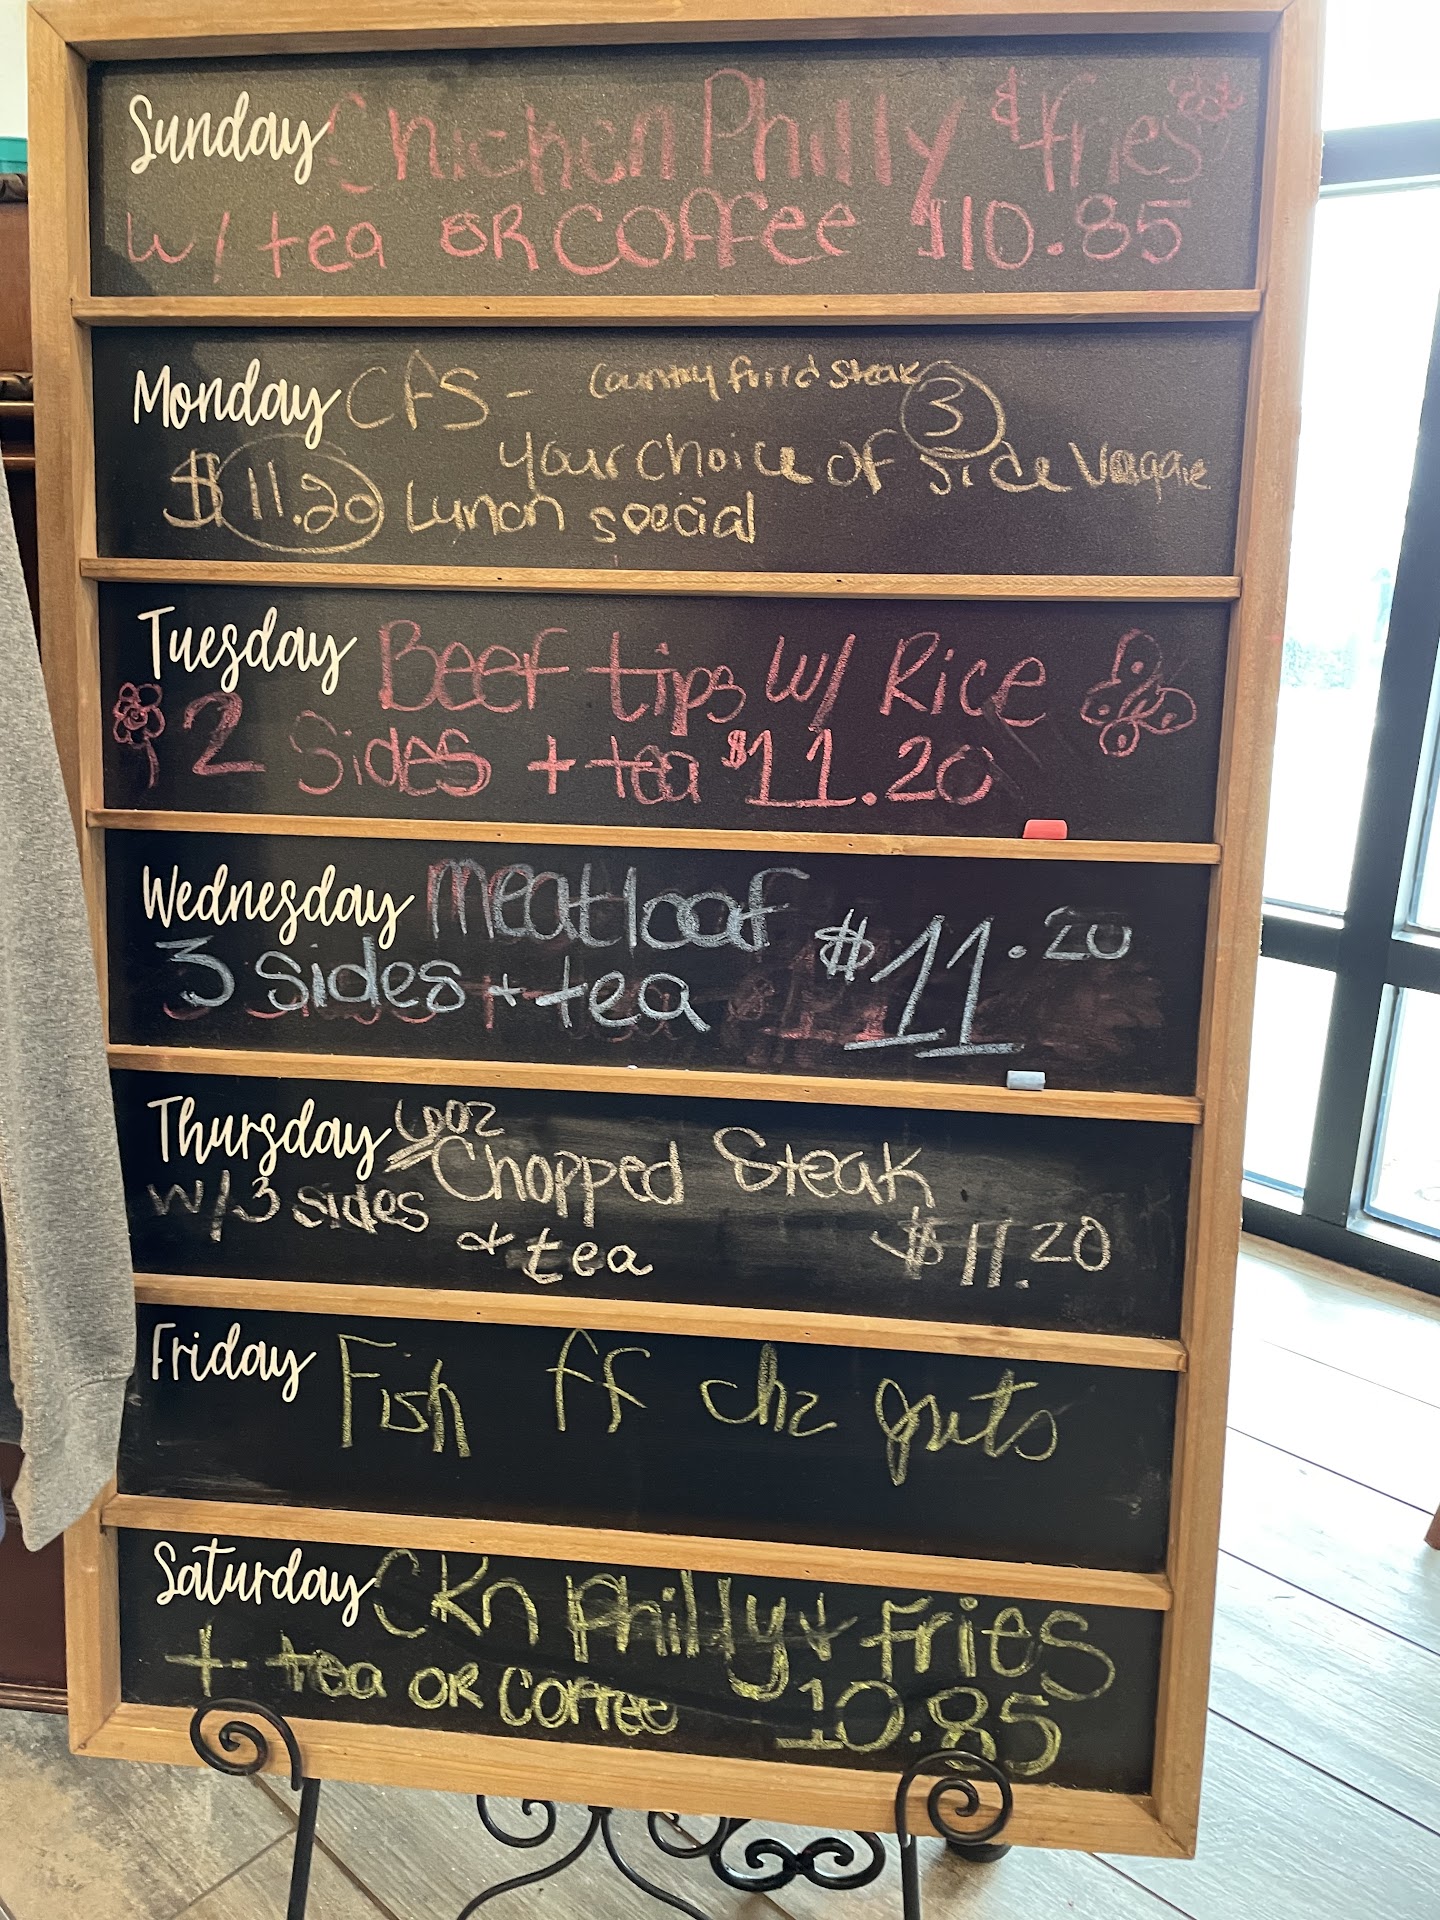 Sunday Chicken Philly & fries
w/ tea OR Coffee $10.85
Monday CFS - Country friid steak
your choice of 3 side Veggie
$11.20 Lunch special
Tuesday Beef tips w/ Rice
2 sides + tea $11.20
Wednesday meatloaf $11.20
3 sides + tea
Thursday 6oz Chopped Steak
w/3 sides & tea $11.20
Friday Fish ff chz grits
Saturday CKn philly & Fries
+ tea OR Coffee 10.85